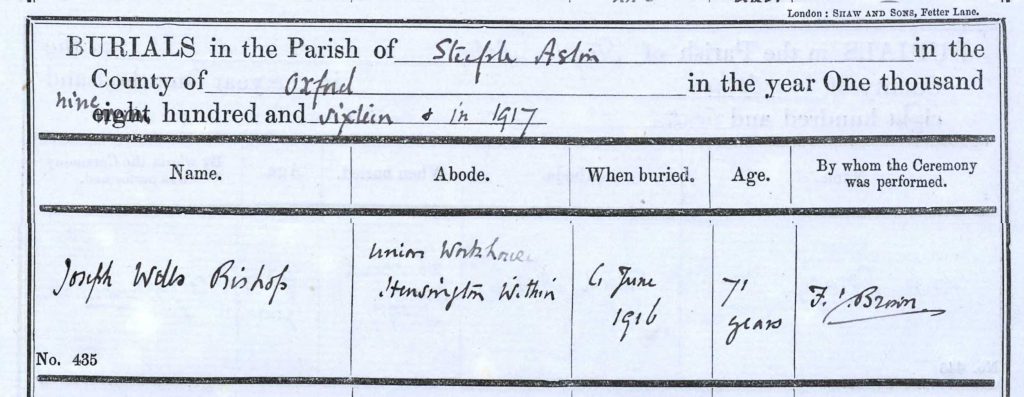 London: SHAW AND SONS, Fetter Lane.
BURIALS in the Parish of Steeple Aston in the
County of Oxford in the year One thousand
nine
eight hundred and sixteen & in 1917
Name. Abode. When buried. Age. By whom the Ceremony was performed.
Joseph Wells Bishop
Union Workhouse
Hensington Within
6 June
1916
71
years
F. J. Brown
No. 435